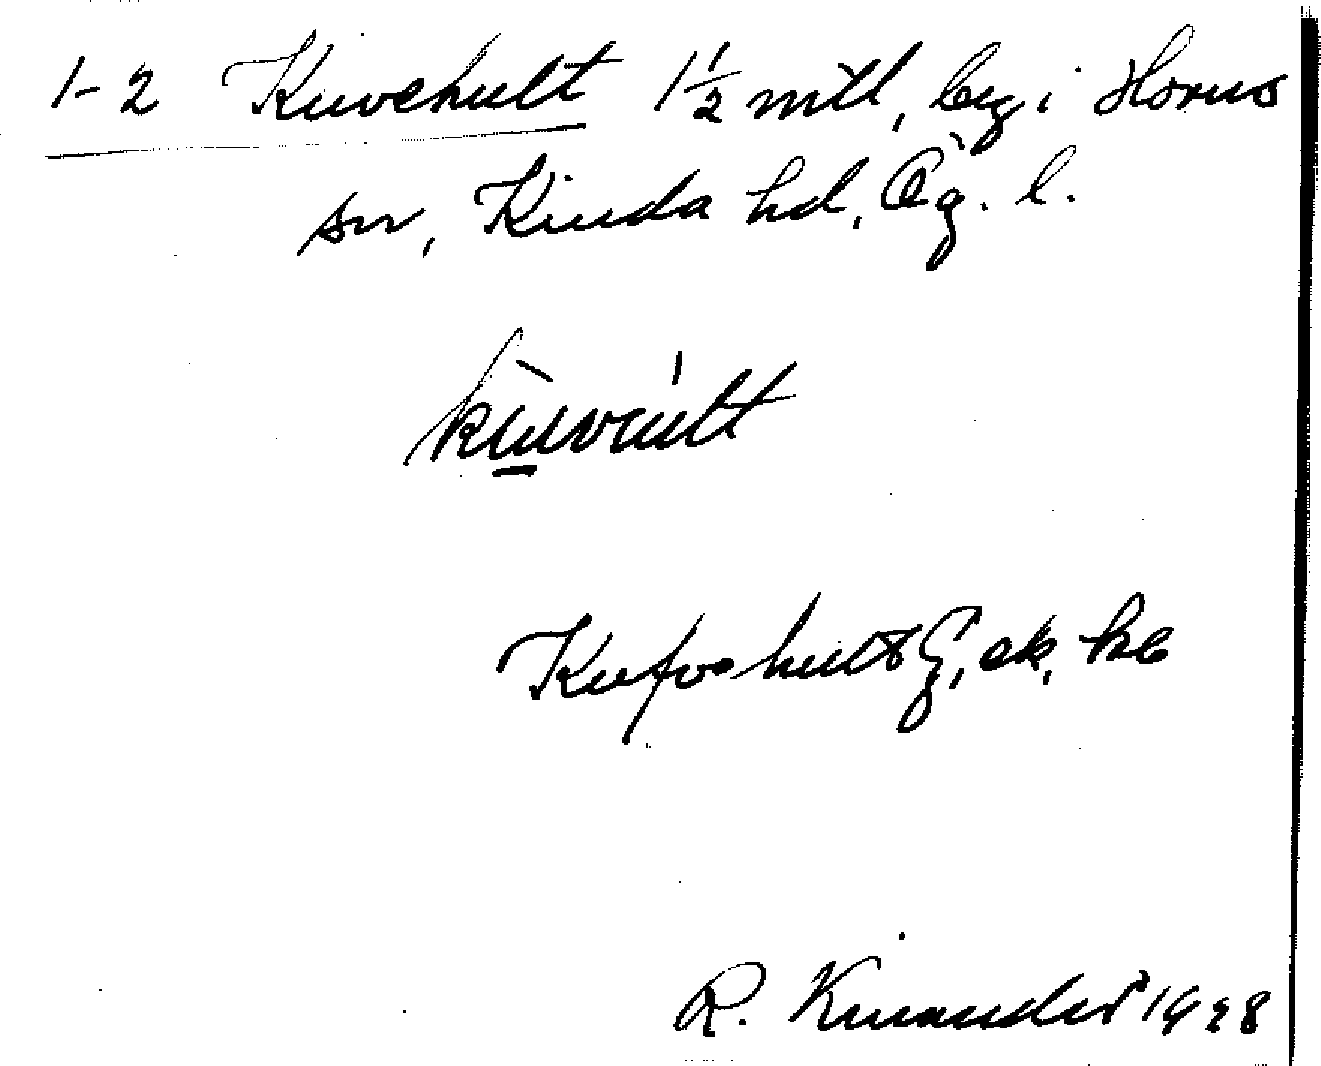 1-2 Kuvehult 1½ mtl, by i Horns
sn, Kinda hd, Ög. l.
kùvúlt
Kufvehult G, ek, kb
R. Kinander 1928